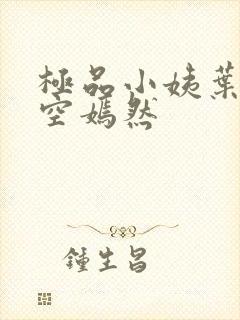 極品小姨葉
空嫣然
鍾生昌